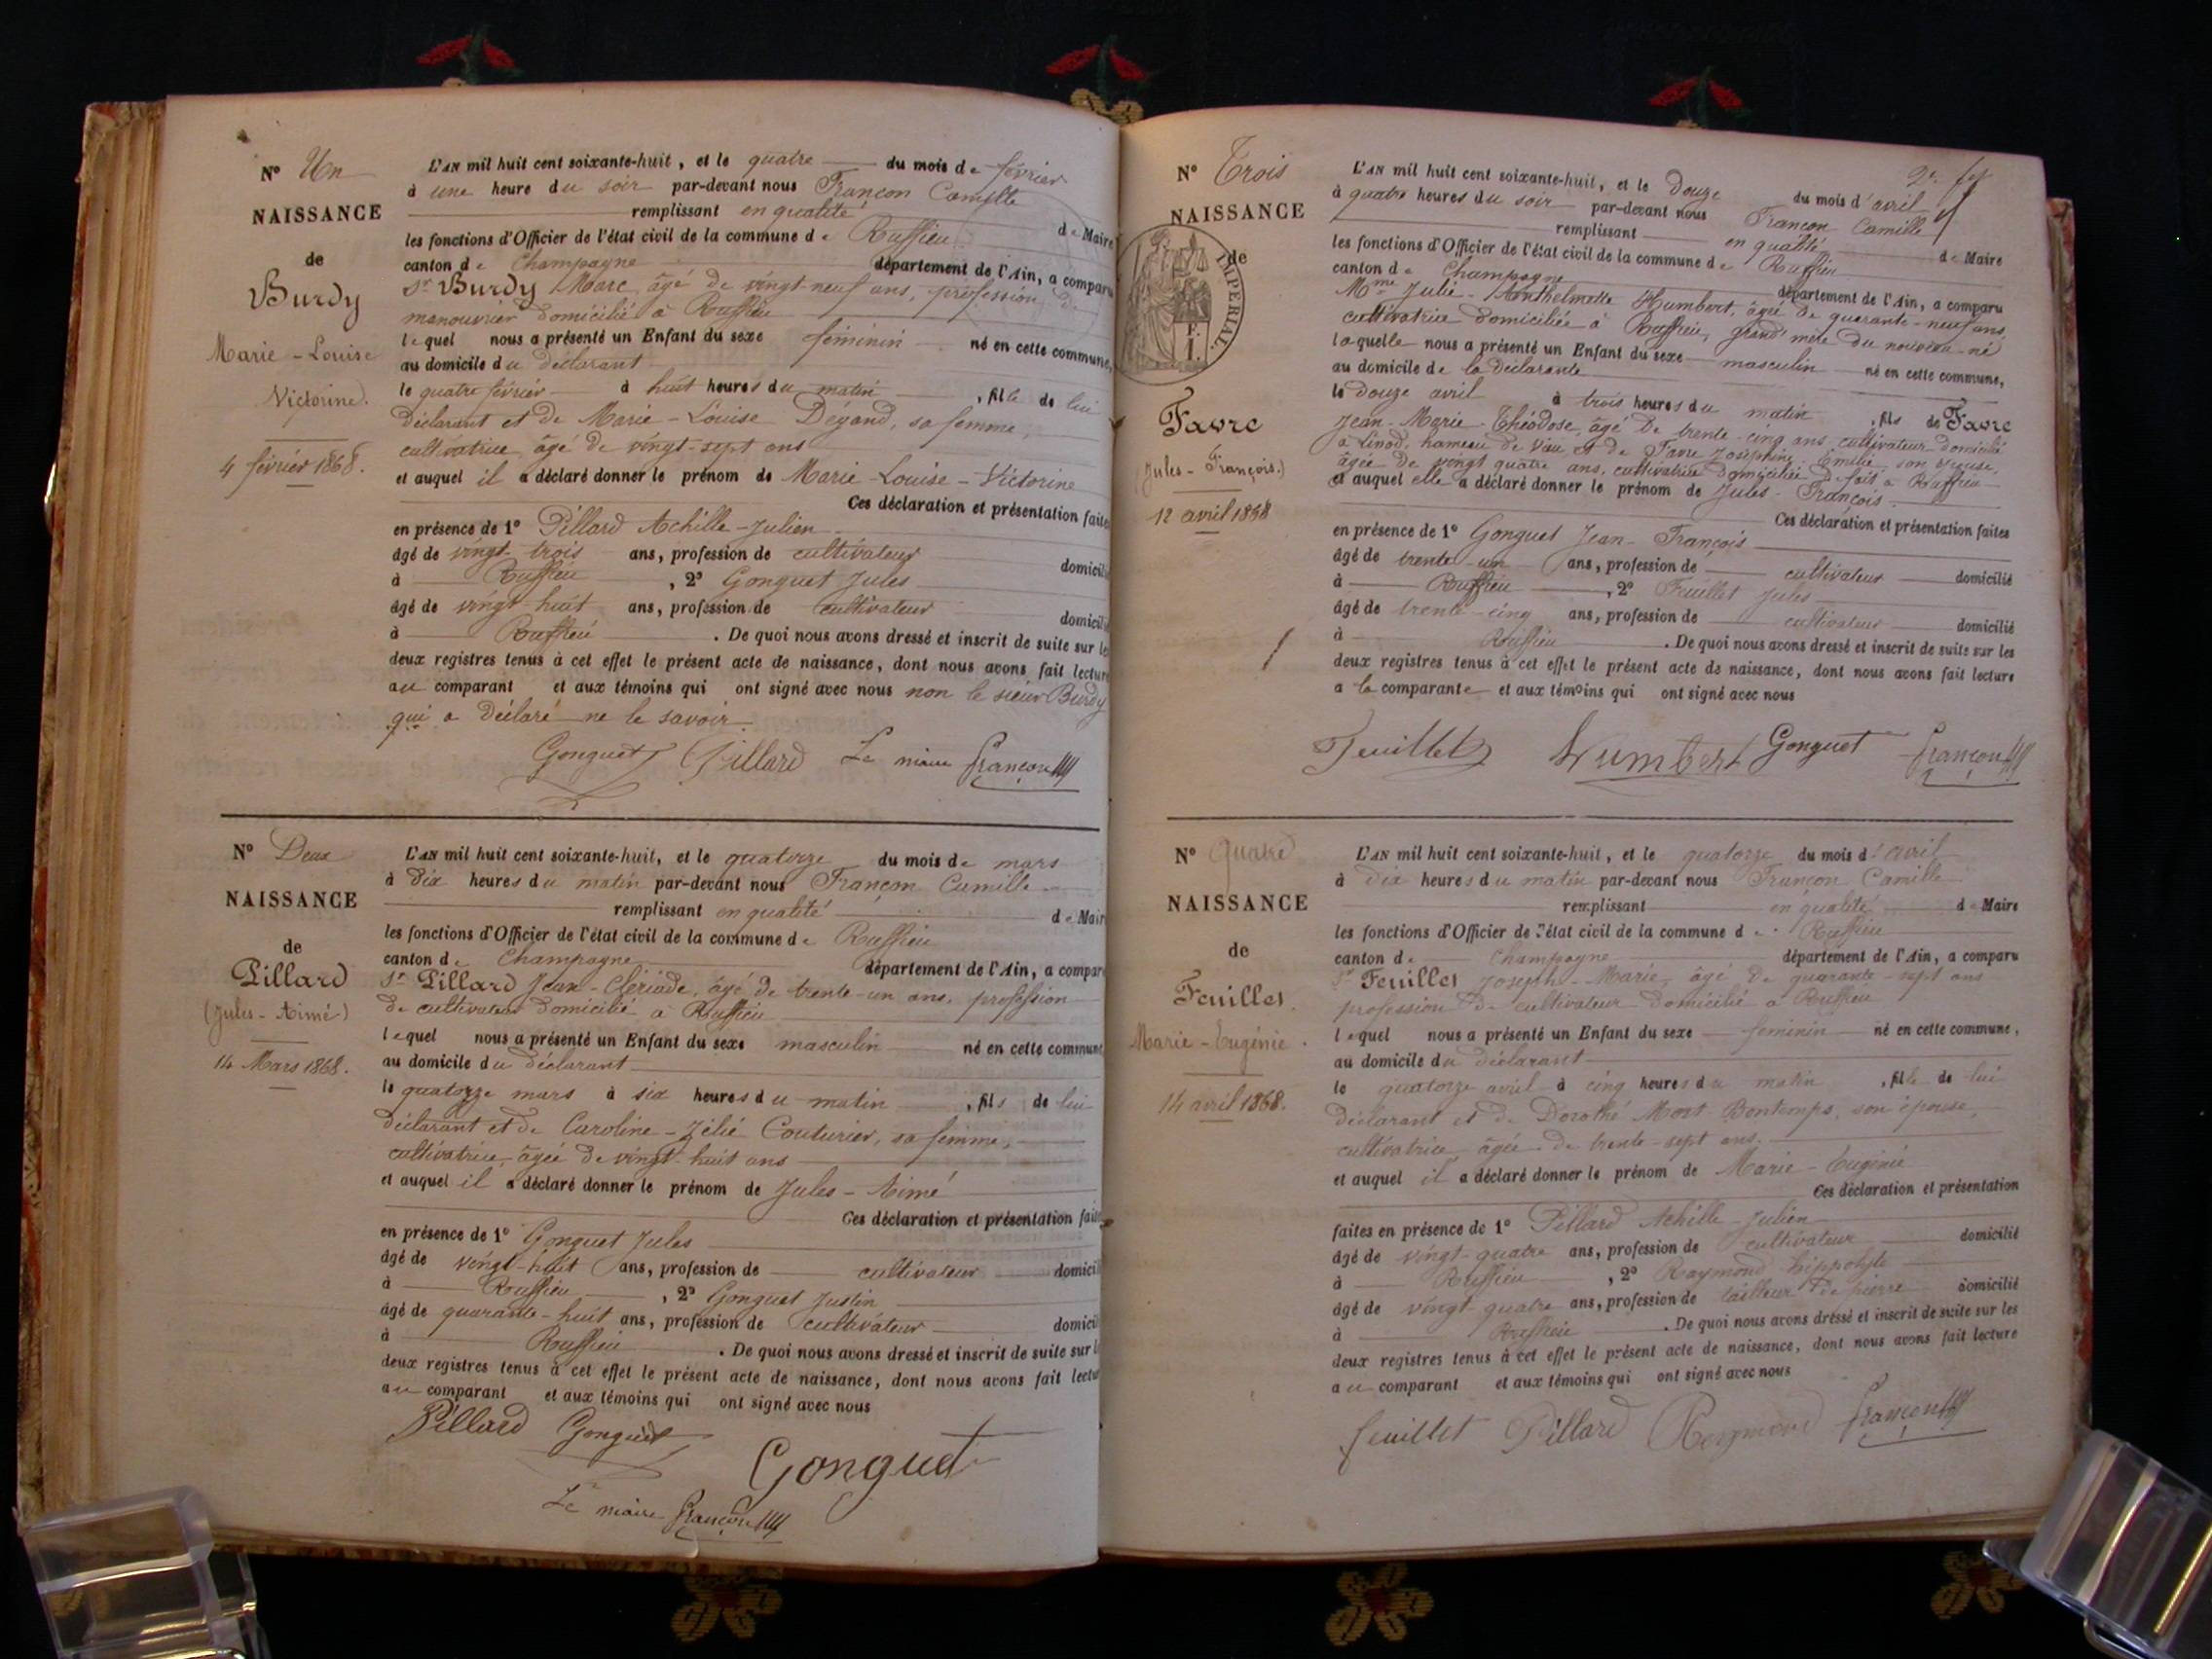 N° Un
NAISSANCE
de
Burdy
Marie-Louise
Victorine.
4 février 1868.
L'AN mil huit cent soixante-huit, et le quatre du mois de février
à une heure du soir par-devant nous Françon Camille
remplissant en qualité de Maire
les fonctions d'Officier de l'état civil de la commune de Ruffieu
canton de Champagne département de l'Ain, a comparu
Sr Burdy Marc, âgé de vingt-neuf ans, profession de
manouvrier domicilié à Ruffieu
lequel nous a présenté un Enfant du sexe féminin né en cette commune,
au domicile du déclarant
le quatre février à huit heures du matin, fille de lui
déclarant et de Marie-Louise Dégand, sa femme,
cultivatrice, âgé de vingt-sept ans
et auquel il a déclaré donner le prénom de Marie-Louise-Victorine
Ces déclaration et présentation faites
en présence de 1° Pillard Achille-Julien
âgé de vingt-trois ans, profession de cultivateur domicili
à Ruffieu, 2° Gonguet Jules
âgé de vingt-huit ans, profession de cultivateur domicili
à Ruffieu. De quoi nous avons dressé et inscrit de suite sur le
deux registres tenus à cet effet le présent acte de naissance, dont nous avons fait lecture
au comparant et aux témoins qui ont signé avec nous non le sieur Burdy
qui a déclaré ne le savoir.
Gonguet Pillard Le maire Françon
N° Deux
NAISSANCE
de
Pillard
(Jules-Aimé)
14 Mars 1868.
L'AN mil huit cent soixante-huit, et le quatorze du mois de mars
à dix heures du matin par-devant nous Françon Camille
remplissant en qualité de Mair
les fonctions d'Officier de l'état civil de la commune de Ruffieu
canton de Champagne département de l'Ain, a compar
Sr Pillard Jean-Clériade, âgé de trente-un ans, profession
de cultivateur domicilié à Ruffieu
lequel nous a présenté un Enfant du sexe masculin né en cette commune,
au domicile du déclarant
le quatorze mars à six heures du matin, fils de lui
déclarant et de Caroline-Zélié Couturier, sa femme,
cultivatrice, âgée de vingt-huit ans
et auquel il a déclaré donner le prénom de Jules-Aimé
Ces déclaration et présentation faites
en présence de 1° Gonguet Jules
âgé de vingt-huit ans, profession de cultivateur domici
à Ruffieu, 2° Gonguet Justin
âgé de quarante-huit ans, profession de cultivateur domici
à Ruffieu. De quoi nous avons dressé et inscrit de suite sur l
deux registres tenus à cet effet le présent acte de naissance, dont nous avons fait lectu
au comparant et aux témoins qui ont signé avec nous
Pillard Gonguet
Gonguet
Le maire Françon
2e
N° Trois
NAISSANCE
de
IMPERIAL.
F.
1.
Favre
Jules-François.)
12 avril 1868
L'AN mil huit cent soixante-huit, et le Douze du mois d'avril
à quatre heures du soir par-devant nous Françon Camille
remplissant en qualité de Maire
les fonctions d'Officier de l'état civil de la commune de Ruffieu
canton de Champagne département de l'Ain, a comparu
Mme Julie-Anthelmette Humbert, âgée de quarante-neuf ans,
cultivatrice domiciliée à Ruffieu, grand'mère du nouveau-né
laquelle nous a présenté un Enfant du sexe masculin né en cette commune,
au domicile de la déclarante
le douze avril à trois heures du matin, fils de Favre
Jean-Marie-Théodose, âgé de trente-cinq ans, cultivateur domicilié
à Linod, hameau de Vieu et de Favre Joséphine-Émilie son épouse,
âgée de vingt quatre ans, cultivatrice domiciliée de fait à Ruffieu
et auquel elle a déclaré donner le prénom de Jules-François
Ces déclaration et présentation faites
en présence de 1° Gonguet Jean-François
âgé de trente-un ans, profession de cultivateur domicilié
à Ruffieu, 2° Feuillet Jules
âgé de trente-cinq ans, profession de cultivateur domicilié
à Ruffieu. De quoi nous avons dressé et inscrit de suite sur les
deux registres tenus à cet effet le présent acte de naissance, dont nous avons fait lecture
a la comparante et aux témoins qui ont signé avec nous
Feuillet Humbert Gonguet Françon
N° Quatre
NAISSANCE
de
Feuillet.
Marie-Eugénie.
14 avril 1868.
L'AN mil huit cent soixante-huit, et le quatorze du mois d'avril
à dix heures du matin par-devant nous Françon Camille
remplissant en qualité de Maire
les fonctions d'Officier de l'état civil de la commune de Ruffieu
canton de Champagne département de l'Ain, a comparu
Sr Feuillet Joseph-Marie, âgé de quarante-sept ans
profession de cultivateur domicilié à Ruffieu
lequel nous a présenté un Enfant du sexe féminin né en cette commune,
au domicile du déclarant
le quatorze avril à cinq heures du matin, fille de lui
déclarant et de Dorothé Mont-Bontemps, son épouse,
cultivatrice âgée de trente-sept ans.
et auquel il a déclaré donner le prénom de Marie-Eugénie
Ces déclaration et présentation
faites en présence de 1° Pillard Achille-Julien
âgé de vingt-quatre ans, profession de cultivateur domicilié
à Ruffieu, 2° Raymond hippolyte
âgé de vingt-quatre ans, profession de tailleur de pierre domicilié
à Ruffieu. De quoi nous avons dressé et inscrit de suite sur les
deux registres tenus à cet effet le présent acte de naissance, dont nous avons fait lecture
au comparant et aux témoins qui ont signé avec nous
feuillet Pillard Raymond Françon